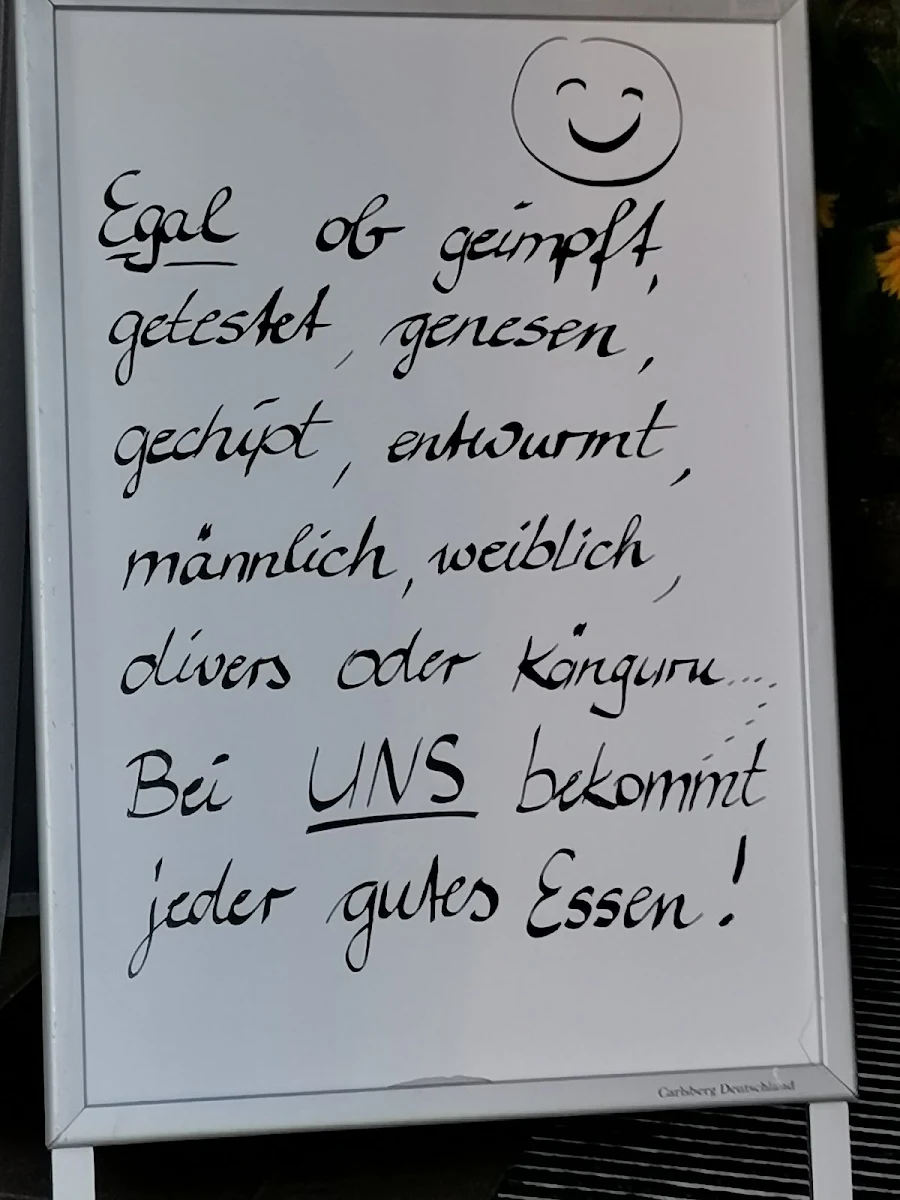 Egal ob geimpft,
getestet, genesen,
gechipt, entwurmt,
männlich, weiblich,
divers oder Känguru....
Bei UNS bekommt
jeder gutes Essen!
Carlsberg Deutschland